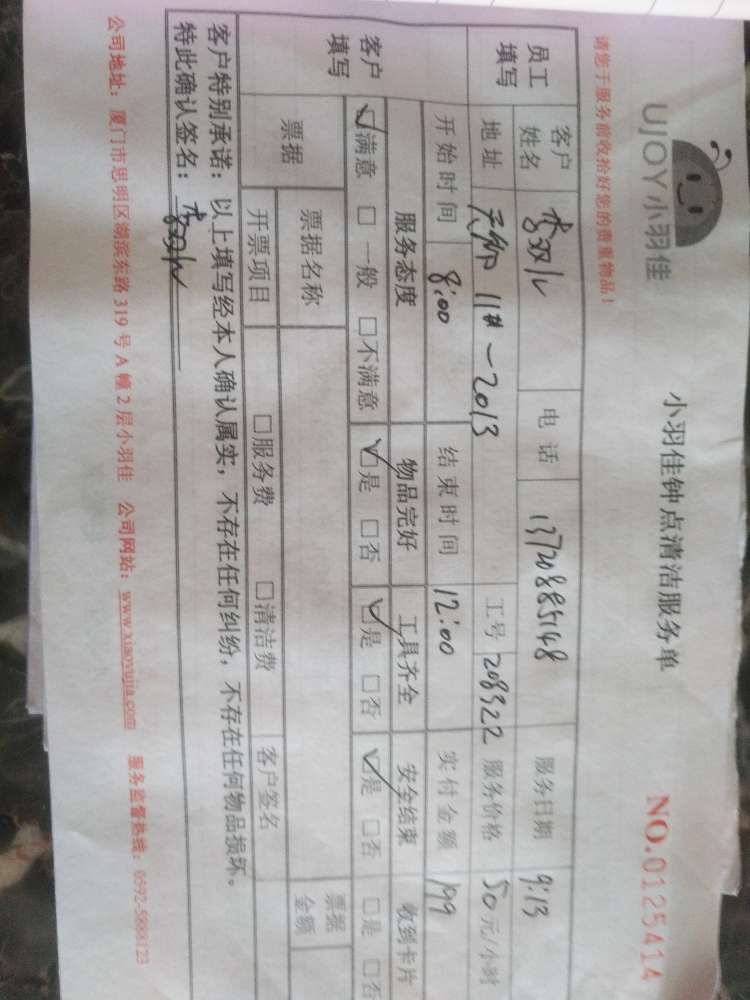 UJOY小羽佳
小羽佳钟点清洁服务单
NO.0125414
请您于服务前收拾好您的贵重物品！
员工填写
客户姓名 李双 电话 13720885148 服务日期 9.13
地址 11#-2013 工号 208322 服务价格 50元/小时
开始时间 8:00 结束时间 12:00 实付金额 199
客户填写
服务态度 物品完好 工具齐全 安全结束 收到卡片
☑满意 □一般 □不满意 ☑是 □否 ☑是 □否 ☑是 □否 □是 □否
票据 票据名称 票据金额
开票项目 □服务费 □清洁费 客户签名
客户特别承诺：以上填写经本人确认属实，不存在任何纠纷，不存在任何物品损坏。
特此确认签名：李双
公司地址：厦门市思明区湖滨东路319号A幢2层小羽佳 公司网站：www.xiaoyujia.com 服务监督热线：0592-5888123